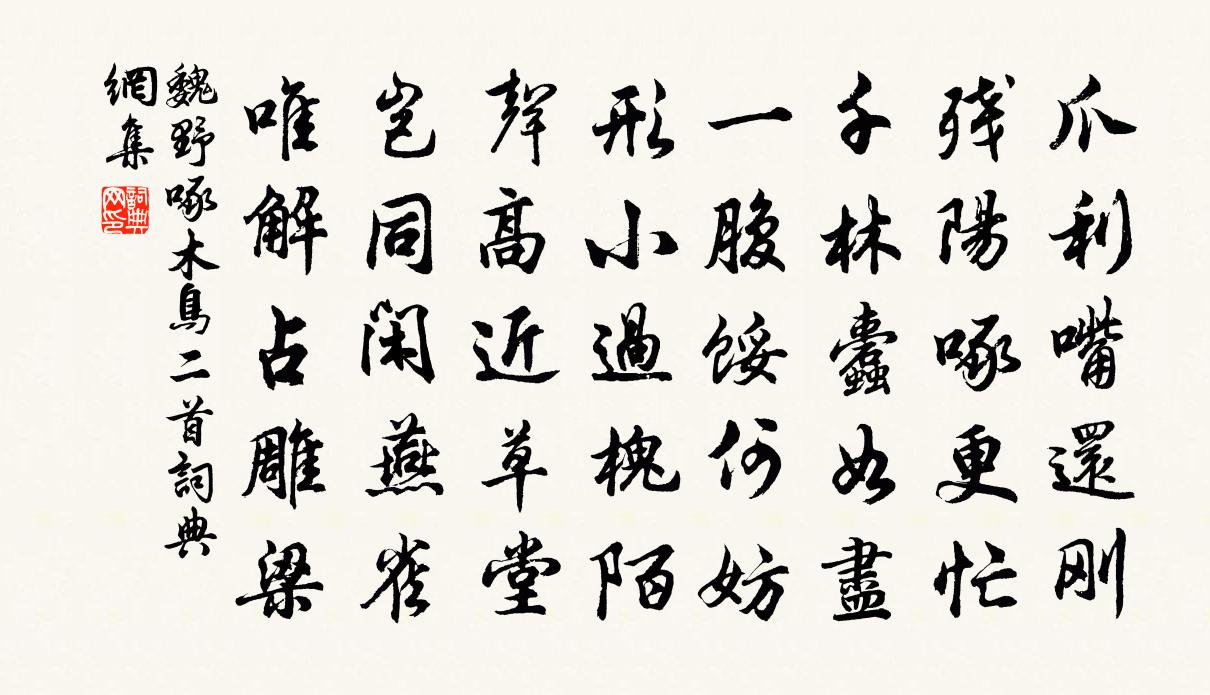 爪利嘴還剛
残陽啄更忙
千林蠹如盡
一腹餒何妨
形小過槐陌
聲高近草堂
豈同閑燕雀
唯解占雕梁
魏野啄木鳥二首詞典
網集
詞典網印